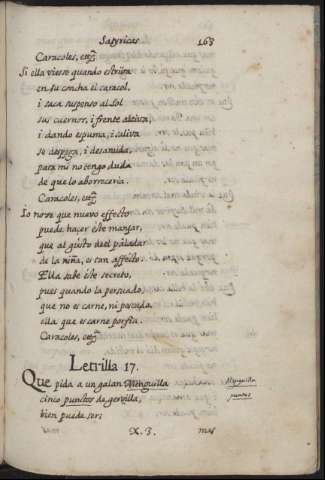 Satyricas 163
Caracoles, etcª
Si ella viesse quando estriva
en su concha el caracol,
i saca suspenso al sol
sus cuernos, i frente altiva,
i dando espuma, i saliva
se despega, i desanuda,
para mi no tengo duda
de que lo aborreceria.
Caracoles, etcª
Io no se que nuevo effecto
puede haçer este manjar,
que al gusto del paladar
de la niña, es tan affecto.
Ella sabe este secreto,
pues quando la persuado,
que no es carne, ni pescado,
ella que es carne porfia.
Caracoles, etcª
Letrilla 17.
Que pida a un galan Menguilla
Minguilla
cinco punctos de gervilla,
puntos
bien puede ser:
X. 3. mas